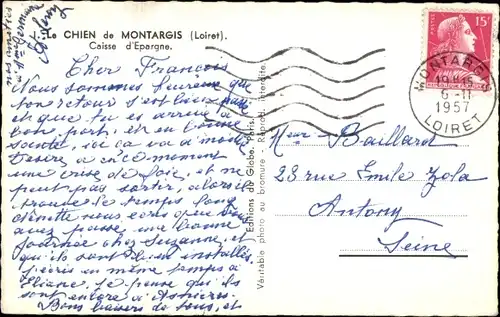 1. Le CHIEN de MONTARGIS (Loiret).
Caisse d'Epargne.
Cher Francois
Nous sommes heureux que
ton retour s'est bien passé
et que tu es arrivé à
bon port, et en bonne
santé, ici ca va a
Désiré a en ce moment
une crise de foie, et ne
peut pas sortir, alors
trouve le temps long
nous ecris que
avez passé une bonne
journée chez Suzanne, et
qu'ils sont bien installés.
J'écris en même temps a
Eliane, je pense qu'ils
sont encore a Asnières.
Bons baisers de tous, et
Editions du Globe, Paris
Véritable photo au bromure - Reprod. interdite
POSTES
15F
MONTARGIS
6-11
1957
LOIRET
Baillard
23 rue Emile Zola
Antony
Seine